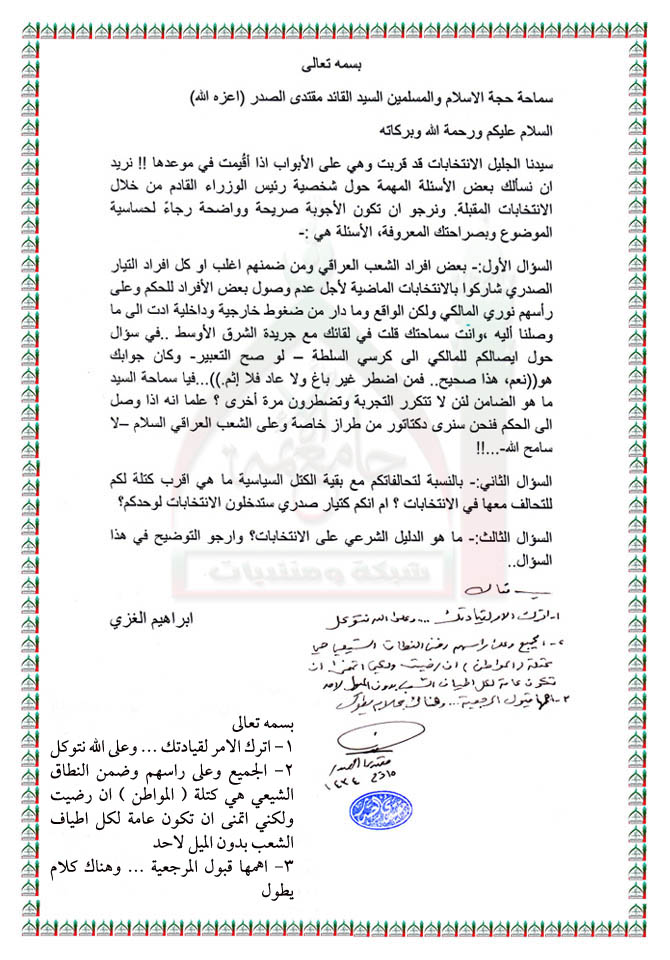 بسمه تعالى
سماحة حجة الاسلام والمسلمين السيد القائد مقتدى الصدر (اعزه الله)
السلام عليكم ورحمة الله وبركاته
سيدنا الجليل الانتخابات قد قربت وهي على الأبواب اذا أقيمت في موعدها !! نريد
ان نسألك بعض الأسئلة المهمة حول شخصية رئيس الوزراء القادم من خلال
الانتخابات المقبلة. ونرجو ان تكون الأجوبة صريحة وواضحة رجاءً لحساسية
الموضوع وبصراحتك المعروفة، الأسئلة هي :-
السؤال الأول:- بعض افراد الشعب العراقي ومن ضمنهم اغلب او كل افراد التيار
الصدري شاركوا بالانتخابات الماضية لأجل عدم وصول بعض الأفراد للحكم وعلى
رأسهم نوري المالكي ولكن الواقع وما دار من ضغوط خارجية وداخلية ادت الى ما
وصلنا أليه ،وانت سماحتك قلت في لقائك مع جريدة الشرق الأوسط ..في سؤال
حول ايصالكم للمالكي الى كرسي السلطة – لو صح التعبير- وكان جوابك
هو((نعم، هذا صحيح.. فمن اضطر غير باغ ولا عاد فلا إثم.))...فيا سماحة السيد
ما هو الضامن لئن لا تتكرر التجربة وتضطرون مرة أخرى ؟ علما انه اذا وصل
الى الحكم فنحن سنرى دكتاتور من طراز خاصة وعلى الشعب العراقي السلام –لا
سامح الله-...!!
السؤال الثاني:- بالنسبة لتحالفاتكم مع بقية الكتل السياسية ما هي اقرب كتلة لكم
للتحالف معها في الانتخابات ؟ ام انكم كتيار صدري ستدخلون الانتخابات لوحدكم؟
السؤال الثالث:- ما هو الدليل الشرعي على الانتخابات؟ وارجو التوضيح في هذا
السؤال..
ابراهيم الغزي
بسمه تعالى
١- اترك الامر لقيادتك ... وعلى الله نتوكل
٢- الجميع وعلى راسهم وضمن النطاق الشيعي هي
كتلة (المواطن) ان رضيت ولكني اتمنى ان
تكون عامة لكل اطياف الشعب بدون الميل لاحد
٣- اهمها قبول المرجعية ... وهناك كلام يطول
مقتدى الصدر
١٤٣٤
بسمه تعالى
١- اترك الامر لقيادتك ... وعلى الله نتوكل
٢- الجميع وعلى راسهم وضمن النطاق
الشيعي هي كتلة ( المواطن ) ان رضيت
ولكني اتمنى ان تكون عامة لكل اطياف
الشعب بدون الميل لاحد
٣- اهمها قبول المرجعية ... وهناك كلام
يطول
شبكة ومنتديات